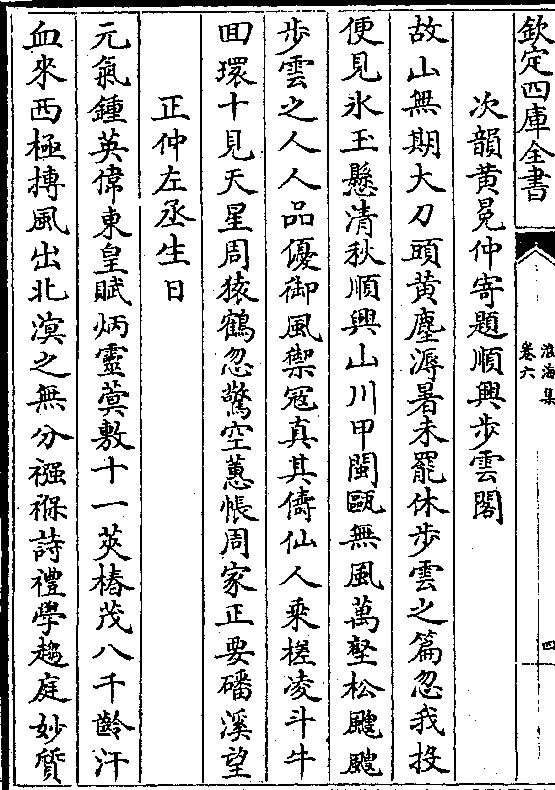 欽定四庫全書
淮海集
卷六
四
次韻黃冕仲寄題順興步雲閣
故山無期大刀頭黃塵溽暑未罷休步雲之篇忽我投
便見氷玉懸清秋順興山川甲閩甌無風萬壑松颼颼
步雲之人人品優御風禦冦真其儔仙人乗槎凌斗牛
囬環十見天星周猿鶴忽驚空蕙帳周家正要磻溪望
正仲左丞生日
元氣鍾英偉東皇賦炳靈蓂敷十一莢椿茂八千齡汗
血來西極摶風出北溟之無分襁褓詩禮學趨庭妙質